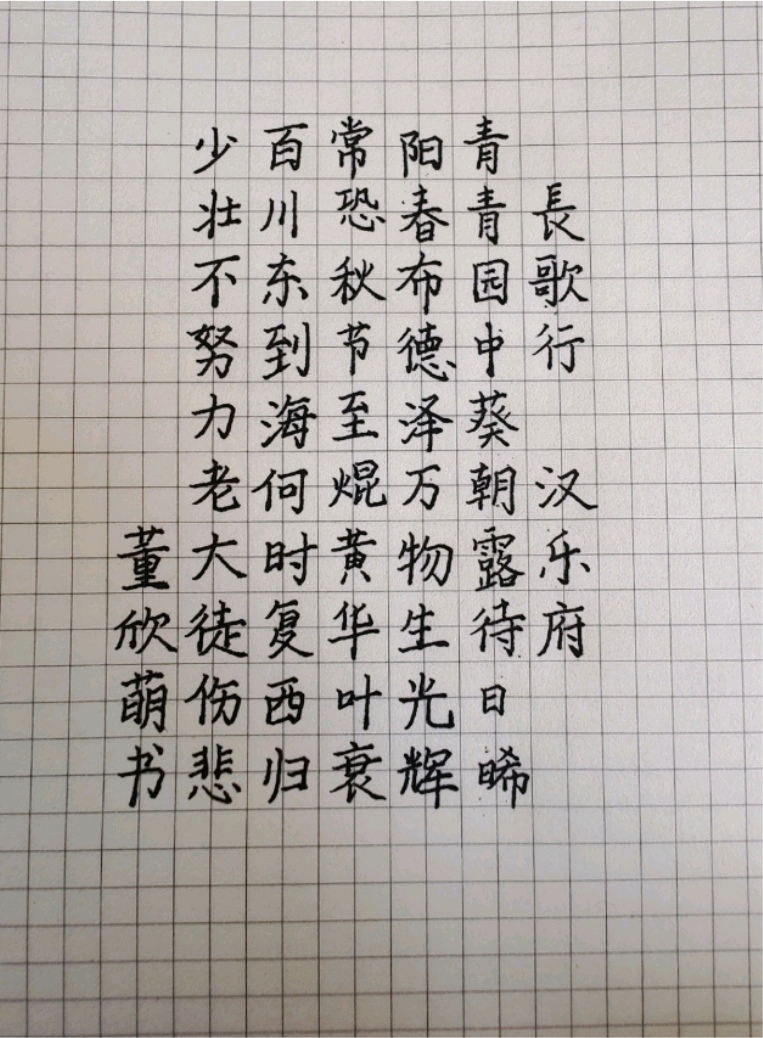 長歌行 汉乐府
青青园中葵朝露待日晞
阳春布德泽万物生光辉
常恐秋节至焜黄华叶衰
百川东到海何时复西归
少壮不努力老大徒伤悲
董欣萌书